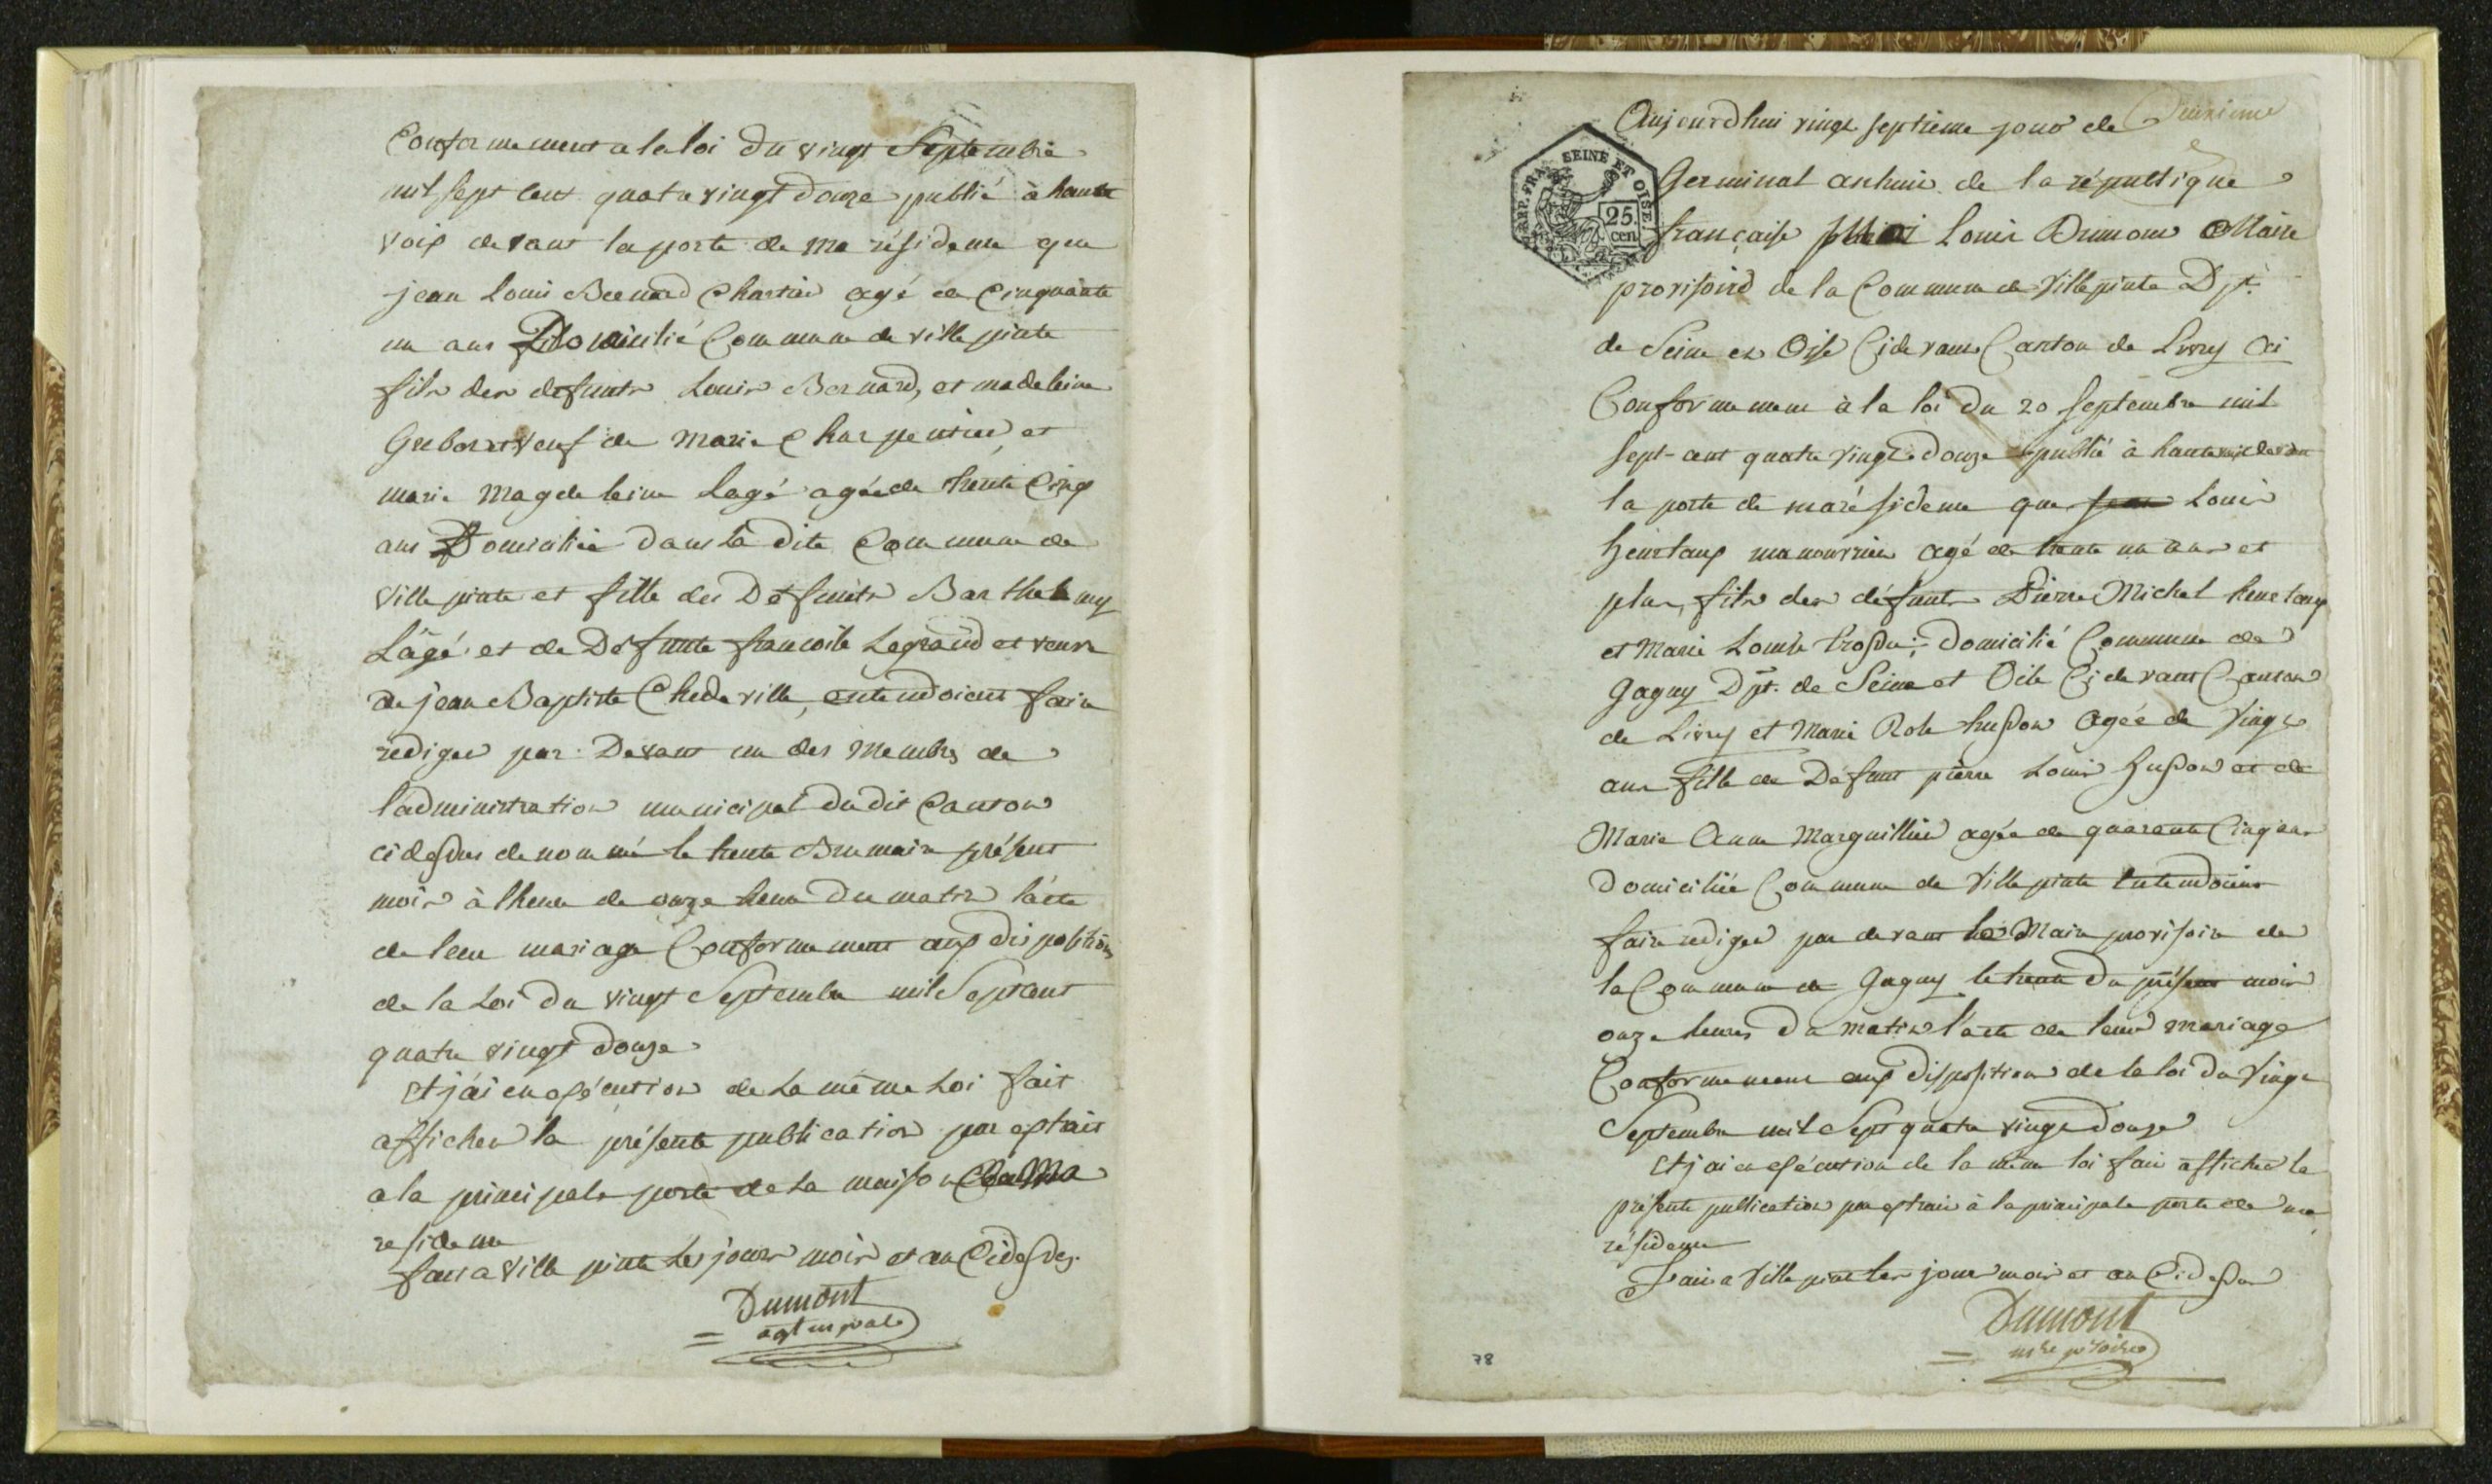 Conformement a la loi du vingt Septembre
mil sept cent quatre vingt douze publié à haute
voix devant la porte de ma résidence que
jean Louis Bernard Chartier agé de Cinquante
un ans Domicilié Commune de ville pinte
fils des defunts Louis Bernard, et madeleine
veuf de Marie Charpentier et
marie Magdeleine Lagé agée de trente Cinq
ans Domiciliée dans la dite Commune de
Ville pinte et fille des Défunts Barthelemy
Lagé et de Défunte francoise Legrand et veuve
de jean Baptiste Chedeville, entendoient faire
rediger par Devant un des Membres de
l'administration municipal du dit Canton
ci dessus denommé le trente Brumaire présent
mois à lheure de onze heure du matin l'acte
de leur mariage Conformement aux dispositions
de la Loi du vingt Septembre mil Sept cent
quatre vingt douze
Et j'ai en exécution de La même Loi fait
afficher la présente publication par extrait
a la principale porte de La maison de Ma
residence
fait a Ville pinte Les jours mois et an Cidessus
Dumont
agt mpale
Aujourdhui vingt septieme jour de Deuxieme
Germinal an huit de la république
française Moi Louis Dumont Maire
provisoire de la Commune de Villepinte Dpt.
de Seine et Oise Cidevant Canton de Livry ai
Conformement à la loi du 20 septembre mil
sept-cent quatre vingt douze publié à haute voix devant
la porte de ma résidence que Louis
heurtaux manouvrier agé de trente un ans et
plus, fils des défunts Pierre Michel heurtaux
et Marie Louise domicilié Commune de
Gagny Dpt. de Seine et Oise Cidevant Canton
de Livry et Marie Rose husson Agée de Vingt
ans fille de Défunt pierre Louis husson et de
Marie Anne Marguillier agée de quarante Cinq ans
Domiciliée Commune de Villepinte Entendoient
faire rediger par devant le Maire provisoire de
la Commune de Gagny le trente du présent mois
onze heures du matin l'acte de leur mariage
Conformement aux disposition de la loi du Vingt
Septembre mil Sept quatre vingt Douze
Et j'ai en exécution de la même loi fait afficher la
présente publication par extrait à la principale porte de ma
résidence
Fait a Villepinte les jour mois et an Cidessus
Dumont
mre pvsoire
REP. FRA. SEINE ET OISE.
25.
cen
78